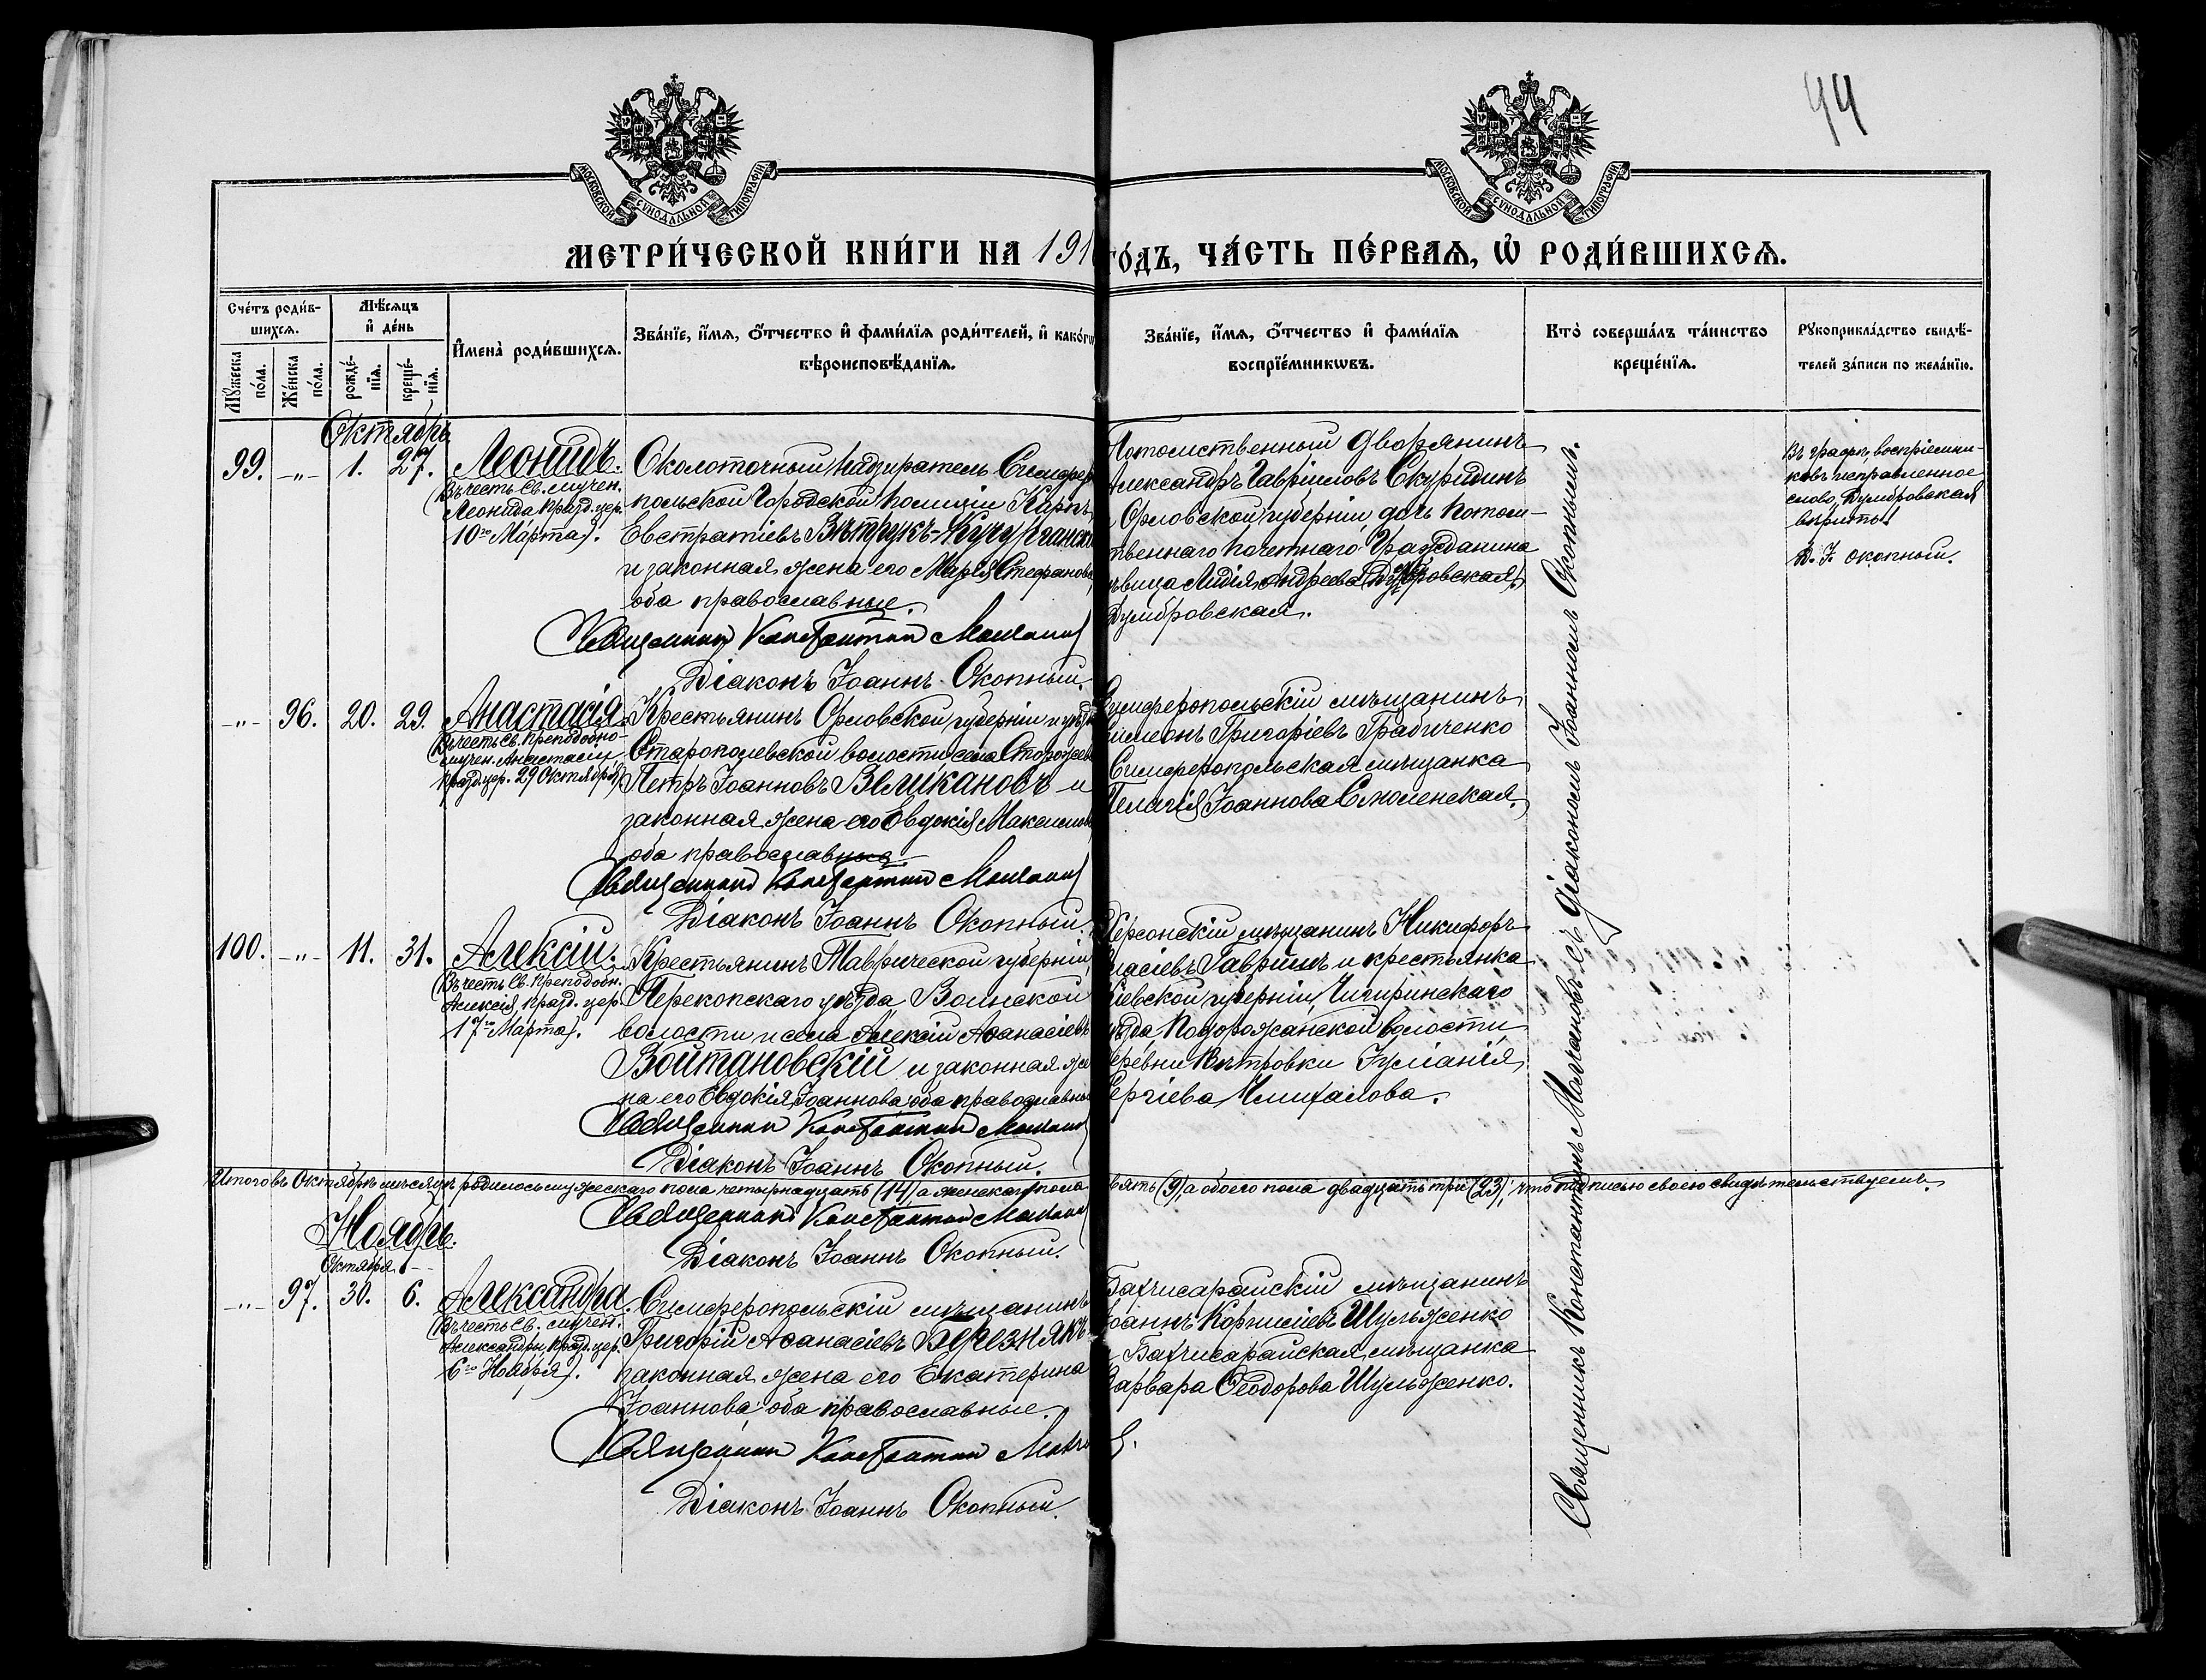 44
МОСКОВСКОЙ СѴНОДАЛЬНОЙ ТИПОГРАФІИ.
МОСКОВСКОЙ СѴНОДАЛЬНОЙ ТИПОГРАФІИ.
МЕТРИ́ЧЕСКОЙ КНИ́ГИ НА 191
ГО́ДЪ, ЧА́СТЬ ПЕ́РВАѦ, Ѿ РОДИ́ВШИХСѦ.
Сче́тъ роди́в-
шихсѧ.
Мѣ́сѧцъ
и҆ де́нь
Мꙋ́жеска
по́ла.
Же́нска
по́ла.
рожде́-
нїѧ.
креще́-
нїѧ.
И҆мена̀ роди́вшихсѧ.
Зва́нїе, и҆́мѧ, ѻ҆́тчество и҆ фами́лїѧ роди́телей, и҆ како́гѡ
вѣроисповѣ́данїѧ.
Зва́нїе, и҆́мѧ, ѻ҆́тчество и҆ фами́лїѧ
воспрїе́мникѡвъ.
Кто̀ соверша́лъ та́инство
креще́нїѧ.
Рꙋкоприкла́дство свидѣ́-
телей за́писи по жела́нїю.
Октябрь
99. -"- 1. 27. Леонидъ.
(Въ честь Св. мучен.
Леонида празд. цер.
10го Марта).
Околоточный Надзиратель Симферо
польской Городской Полиціи Карпъ
Евстратіевъ Вѣтрукъ-Кучурганск
и законная жена его Марія Стефанова,
оба православные.
Священникъ Константинъ Молчановъ
Діаконъ Іоаннъ Окопный.
Потомственный Дворянинъ
Александръ Гавріиловъ Скуридинъ
и Орловской губерніи дочь Потом-
твеннаго Почетнаго Гражданина
вица Лидія Андреева
Думбровская.
Въ графѣ воспріемни-
ковъ исправленное
слово "Думбровская"
вѣрить!
Д. І. Окопный.
-"- 96. 20. 29. Анастасія
(Въ честь Св. Преподобно-
мучен. Анастасіи,
празд. цер. 29 Октября)
Крестьянинъ Орловской губерніи и уѣзда
волости села
Петръ Іоанновъ Великановъ и
законная жена его Евдокія Максимова
оба православные
Священникъ Константинъ Молчановъ
Діаконъ Іоаннъ Окопный.
Симферопольскій мѣщанинъ
Симеонъ Григоріевъ Грабиченко
Симферопольская мѣщанка
Пелагія Іоаннова Смоленская.
100. -"- 11. 31. Алексій.
(Въ честь Св. Преподобн.
Алексія празд. цер.
17го Марта).
Крестьянинъ Таврической губерніи,
Перекопскаго уѣзда Воинской
волости и села Алексій Аѳанасіевъ
Войтановскій и законная же
на его Евдокія Іоаннова, оба православные
Священникъ Константинъ Молчановъ
Діаконъ Іоаннъ Окопный.
Херсонскій мѣщанинъ Никифоръ
Власіевъ Гавришъ и крестьянка
Кіевской губерніи Чигиринскаго
уѣзда Подорожанской волости,
деревни Витровки Іуліанія
Сергіева
Итого въ Октябрѣ мѣсяцѣ родилось мужескаго пола четырнадцать (14) а женскаго пола
вять (9), а обоего пола двадцать три (23), что подписью своею свидѣтельствуемъ.
Священникъ Константинъ Молчановъ
Діаконъ Іоаннъ Окопный.
Ноябрь.
Октября
-"- 97. 30. 6. Александра.
(Въ честь Св. мучен.
Александры, празд. цер.
6го Ноября).
Симферопольскій мѣщанинъ
Григорій Аѳанасіевъ Березнякъ
законная жена его Екатерина
Іоаннова оба православные.
Священникъ Константинъ Молчановъ.
Діаконъ Іоаннъ Окопный.
Бахчисарайскій мѣщанинъ
Іоаннъ Корниліевъ Шульженко
и Бахчисарайская мѣщанка
Варвара Ѳеодорова Шульженко.
Священникъ Константинъ Молчановъ съ діакономъ Іоанномъ Окопнымъ.